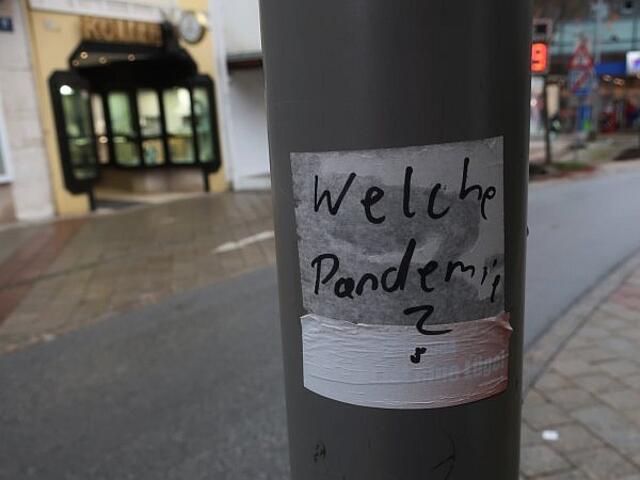 KÖLLER
9
Welche
Pandemie
?